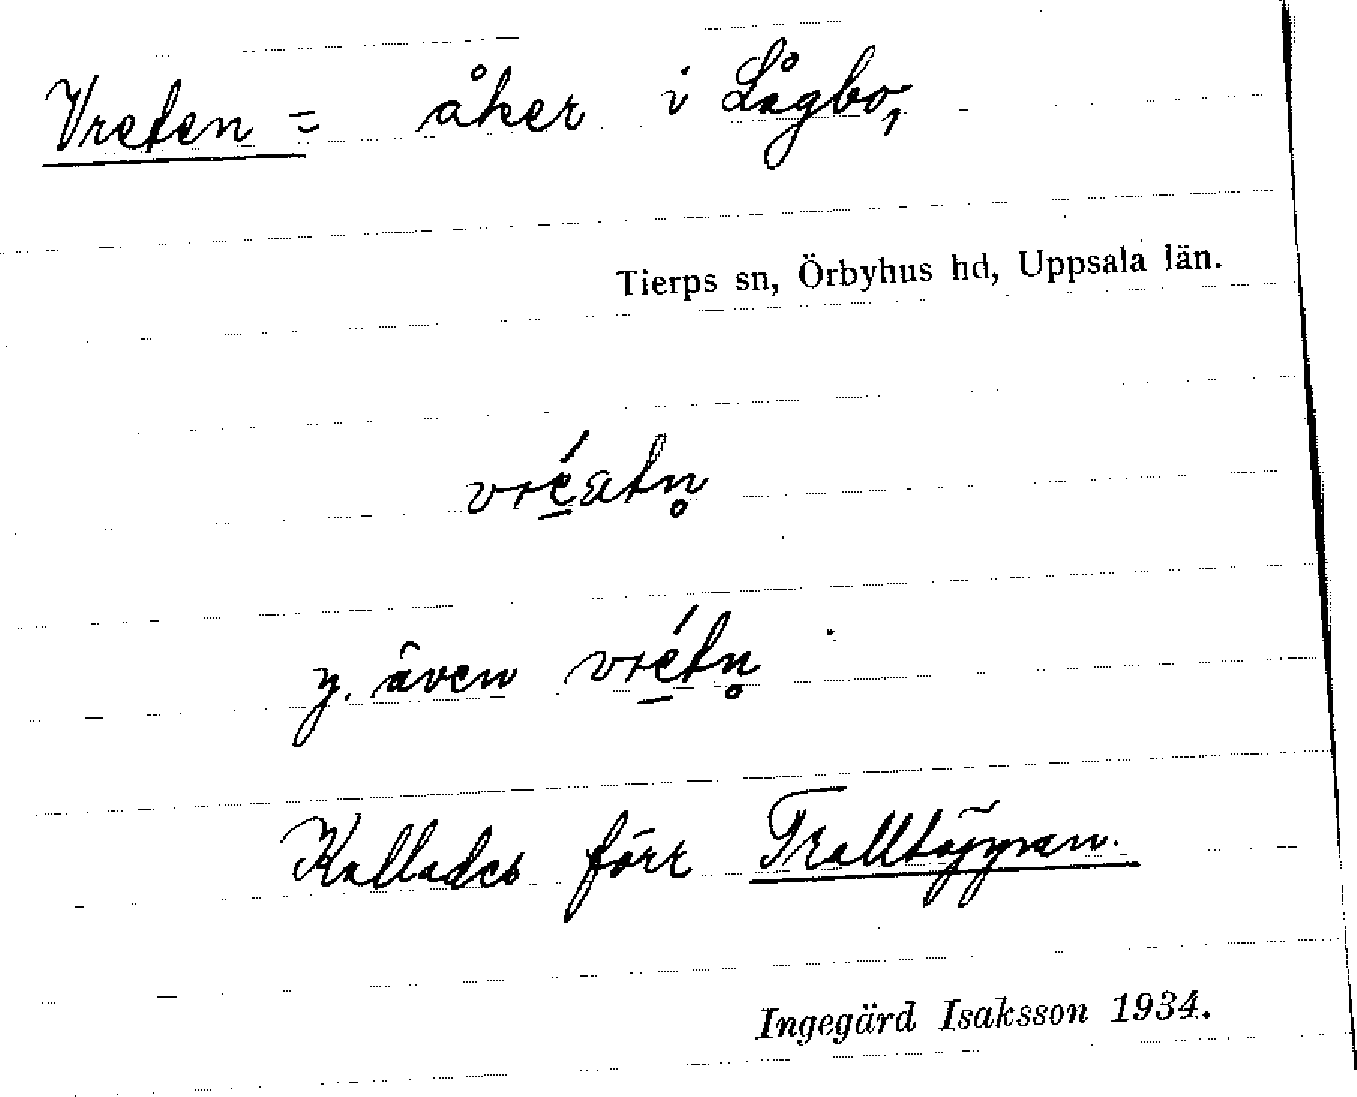 Vreten = åker i Lågbo,
Tierps sn, Örbyhus hd, Uppsala län.
vré̲ɛtn̥
y. även vré̲tn̥
Kallades förr Trolltäppan.
Ingegärd Isaksson 1934.